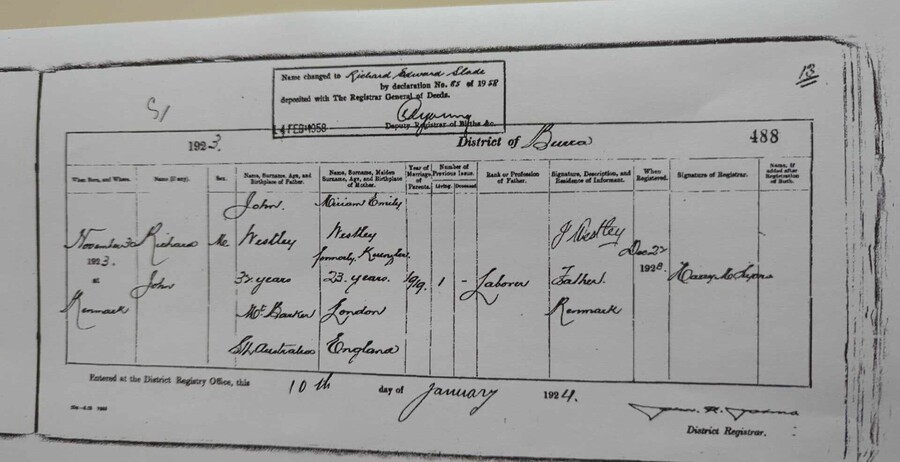 Name changed to Richard Edward Slade
by declaration No. 85 of 1958
deposited with The Registrar General of Deeds.
Deputy Registrar of Births &c.
FEB 1958
13
1923.
District of Burra
488
When Born, and Where.
Name (if any).
Sex.
Name, Surname, Age, and Birthplace of Father.
Name, Surname, Maiden Surname, Age, and Birthplace of Mother.
Year of Marriage of Parents.
Number of Previous Issue.
Living. Deceased.
Rank or Profession of Father.
Signature, Description, and Residence of Informant.
When Registered.
Signature of Registrar.
Name, if added after Registration of Birth.
November 30
1923.
at
Renmark
Richard
John
Me
John
Westley
32 years
Mt Barker
Sth Australia
Miriam Emily
Westley
formerly
23 years.
London
England
1919.
1
-
Laborer
J Westley
Father.
Renmark
Dec 22
1923.
Entered at the District Registry Office, this 10th day of January 1924.
District Registrar.